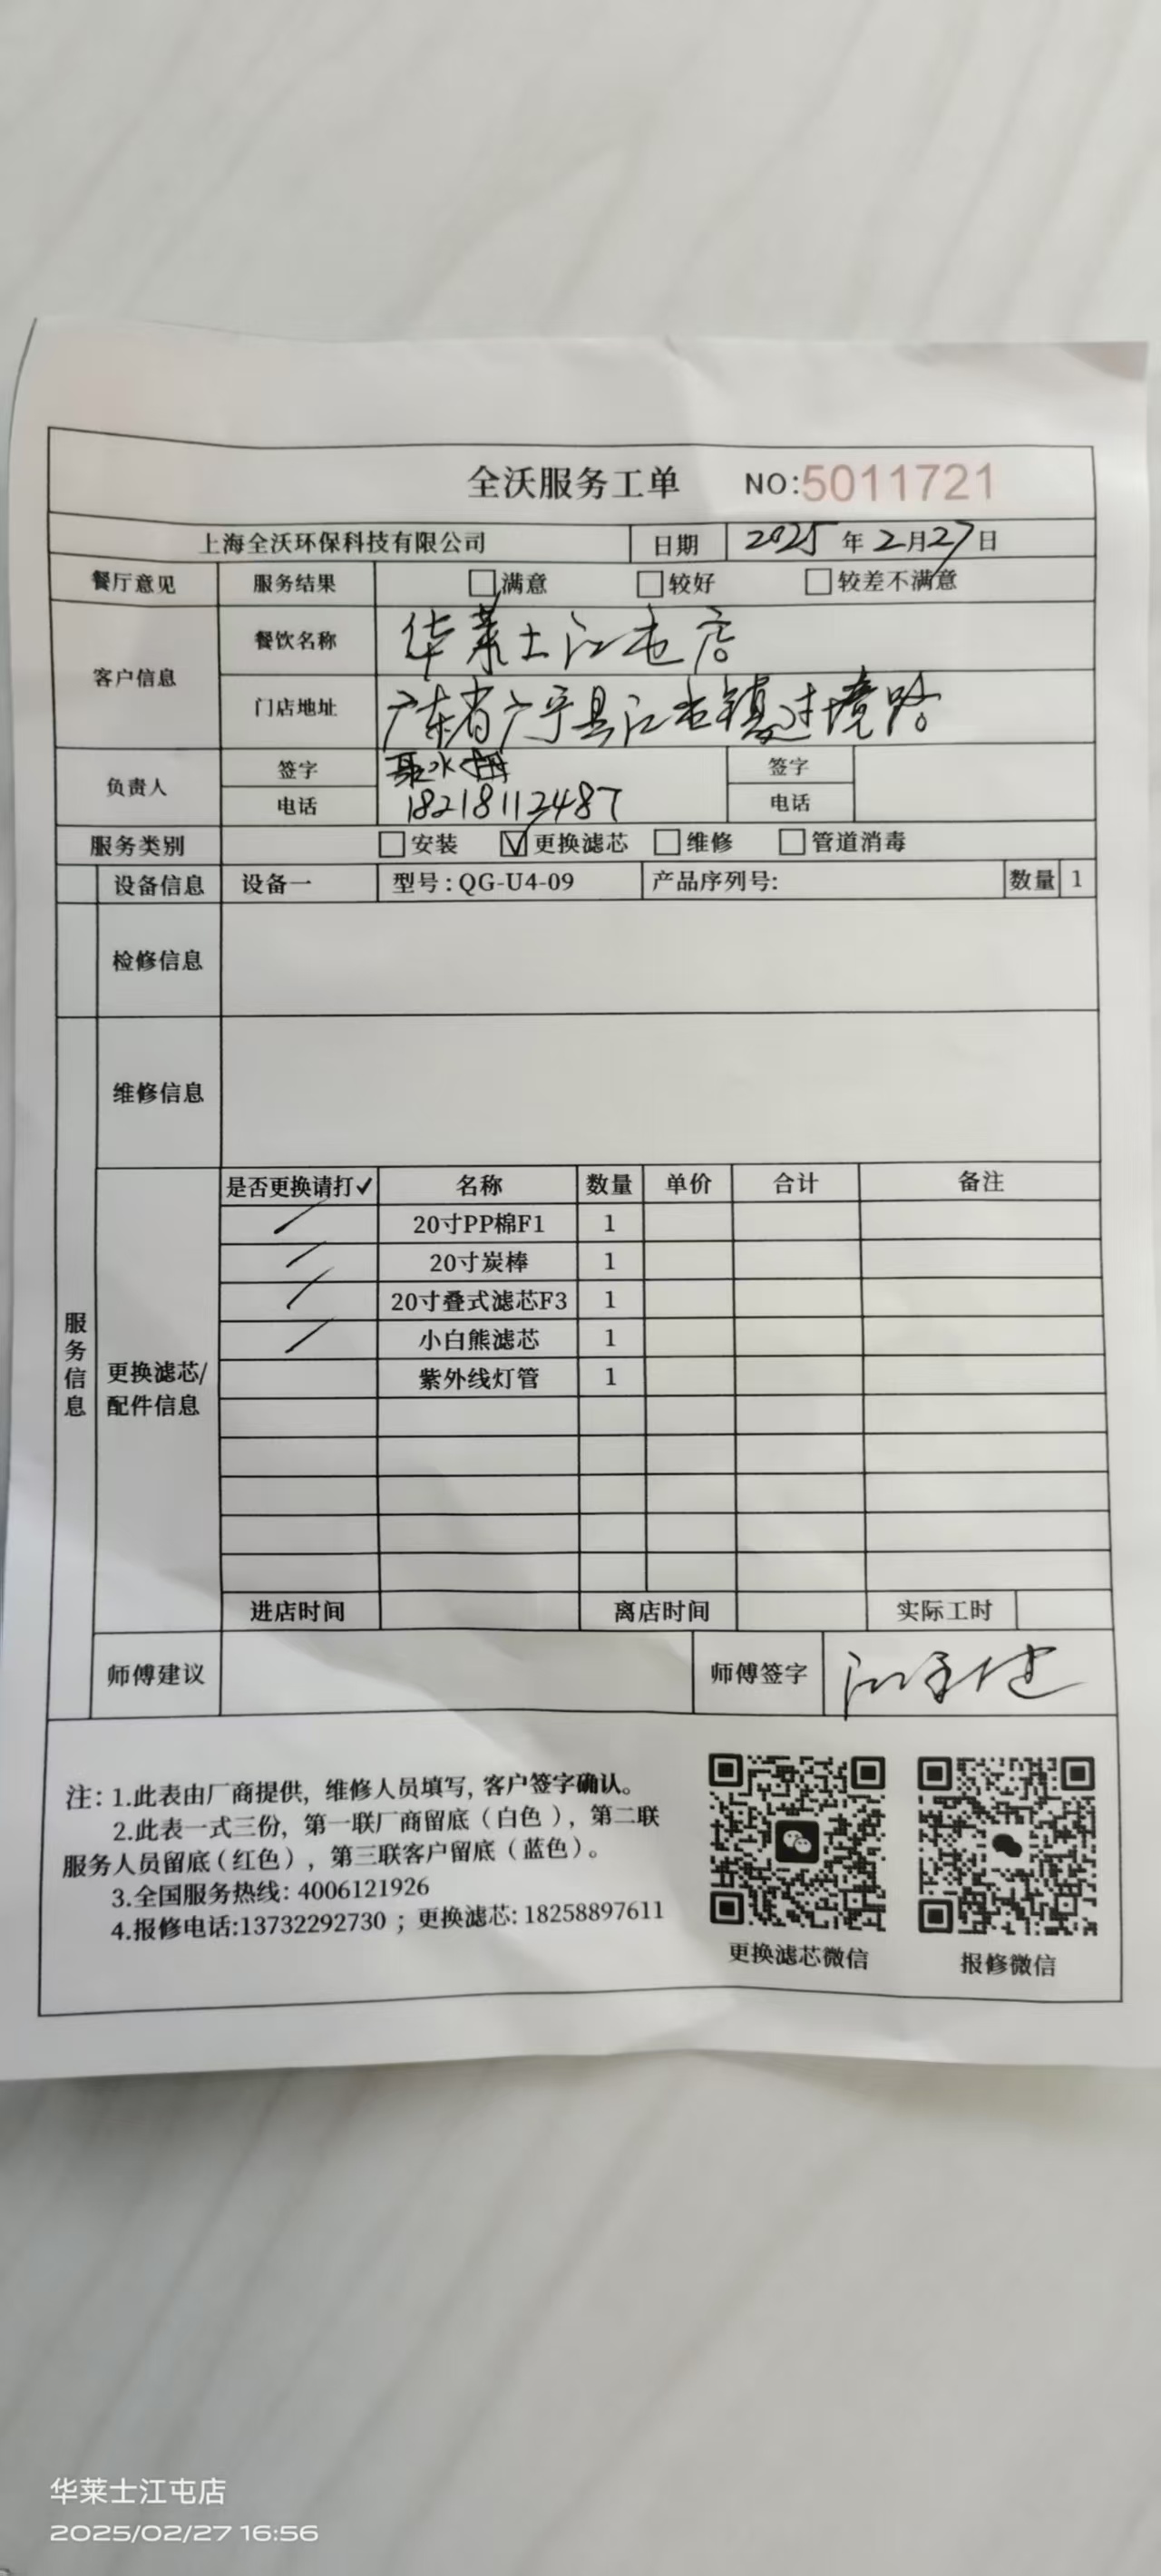 全沃服务工单 NO:5011721
上海全沃环保科技有限公司 日期 2025年2月27日
餐厅意见 服务结果 □满意 □较好 □较差不满意
客户信息 餐饮名称 华莱士江屯店
门店地址 广东省广宁县江屯镇过境路
负责人 签字 签字
电话 18218112487 电话
服务类别 □安装 ☑更换滤芯 □维修 □管道消毒
设备信息 设备一 型号:QG-U4-09 产品序列号: 数量 1
检修信息
维修信息
服务信息
更换滤芯/配件信息
是否更换请打✓ 名称 数量 单价 合计 备注
20寸PP棉F1 1
20寸炭棒 1
20寸叠式滤芯F3 1
小白熊滤芯 1
紫外线灯管 1
进店时间 离店时间 实际工时
师傅建议 师傅签字
注:1.此表由厂商提供,维修人员填写,客户签字确认。
2.此表一式三份,第一联厂商留底(白色),第二联
服务人员留底(红色),第三联客户留底(蓝色)。
3.全国服务热线:4006121926
4.报修电话:13732292730;更换滤芯:18258897611
更换滤芯微信 报修微信
华莱士江屯店
2025/02/27 16:56